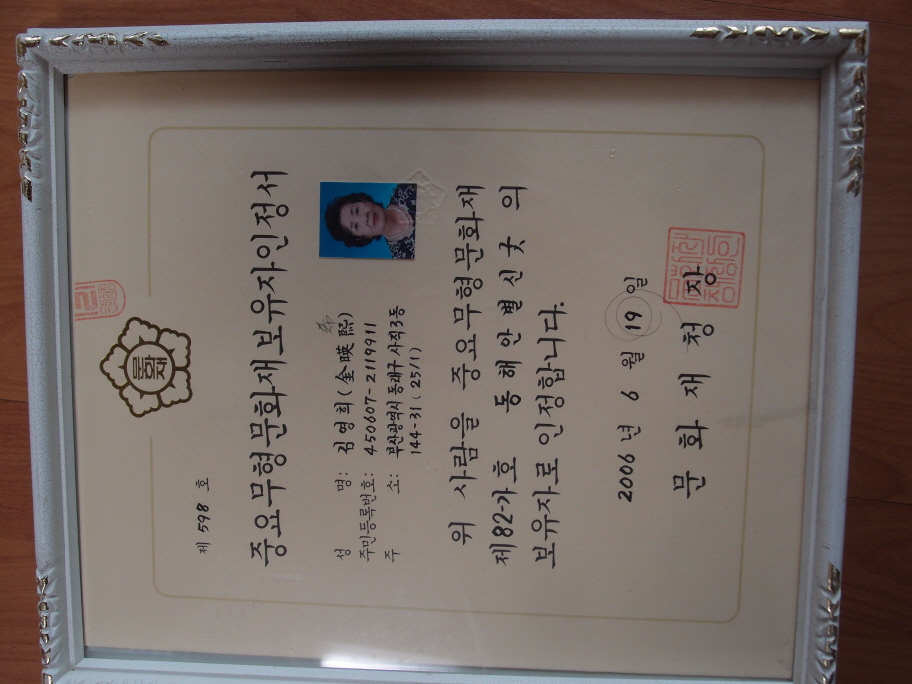 문화재
제 598 호
중요무형문화재보유자인정서
성 명: 김영희(金暎熙)
주민등록번호: 450607-2119911
주 소: 부산광역시 동래구 사직3동
144-31 (25/1)
위 사람을 중요무형문화재
제82-가호 동해안별신굿의
보유자로 인정합니다.
2006년 6월 19일
문화재청장